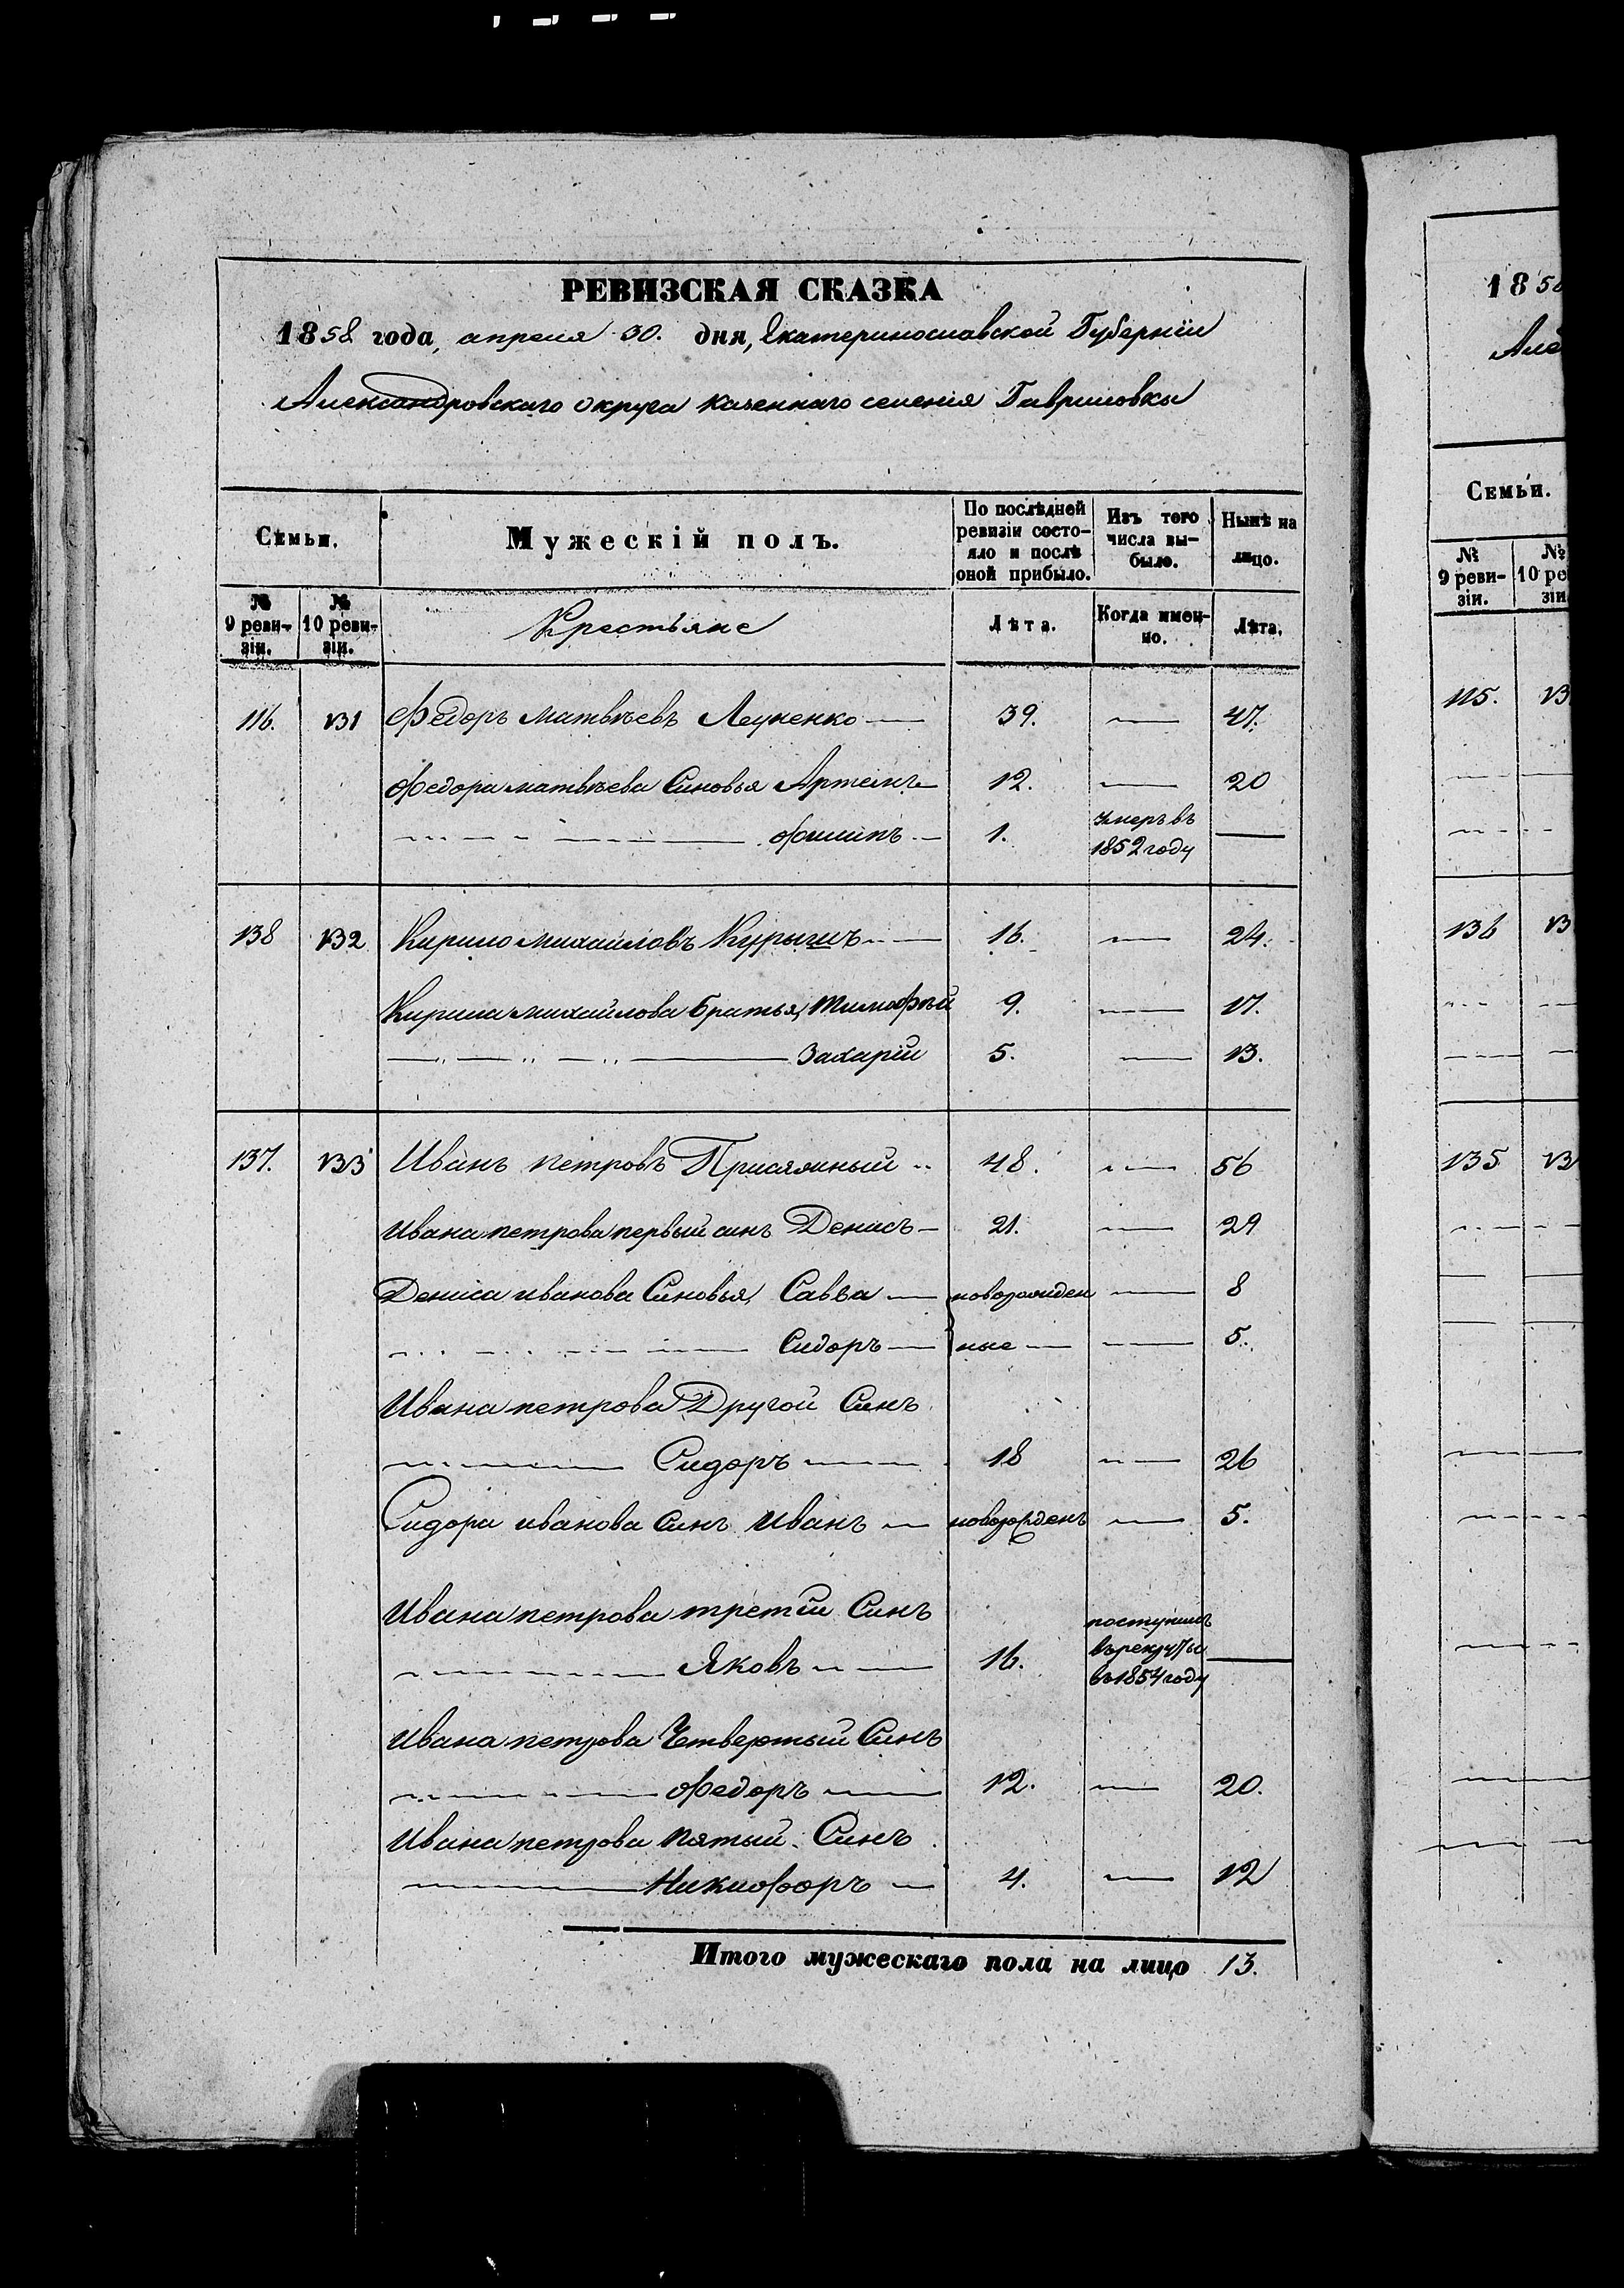 РЕВИЗСКАЯ СКАЗКА
1858 года, апреля 30. дня, Екатеринославской Губерніи
Александровскаго округа казеннаго селенія Гавриловки
Семьи.
Мужескій полъ.
По послѣдней ревизіи состо-
яло и послѣ оной прибыло.
Изъ того числа вы-
было.
Нынѣ на лицо.
№ 9 реви-
зіи.
№ 10 реви-
зіи.
Крестьяне
Лѣта.
Когда имен-
но.
Лѣта.
116. 131 Федоръ матвѣевъ Леуненко 39. — 47.
Федора матвѣева Синовья Артемъ 12. — 20
Филипъ 1. умеръ въ 1852 году —
138 132 Кирило михаиловъ Курыгинъ 16. — 24.
Кирила михайлова братья, Тимофѣй 9. — 17.
Захарій 5. — 13.
137. 133 Иванъ петровъ Присяжный 48. — 56
Ивана петрова первый синъ Денисъ 21. — 29
Дениса иванова Синовья, Савва — новорожден — 8
Сидоръ — ные — 5.
Ивана петрова Другой Синъ
Сидоръ 18 — 26
Сидора иванова Синъ Иванъ — новорожденъ — 5.
Ивана петрова третій Синъ
Яковъ 16. поступилъ въ рекруты въ 1854 году —
Ивана петрова Четвертый Синъ
Федоръ 12. — 20.
Ивана петрова пятый Синъ
Никифоръ 4. — 12
Итого мужескаго пола на лицо 13.
1858
Але
Семьи.
№ 9 реви-
зіи.
№ 10 ре
зіи
115. 13
136 13
135 13